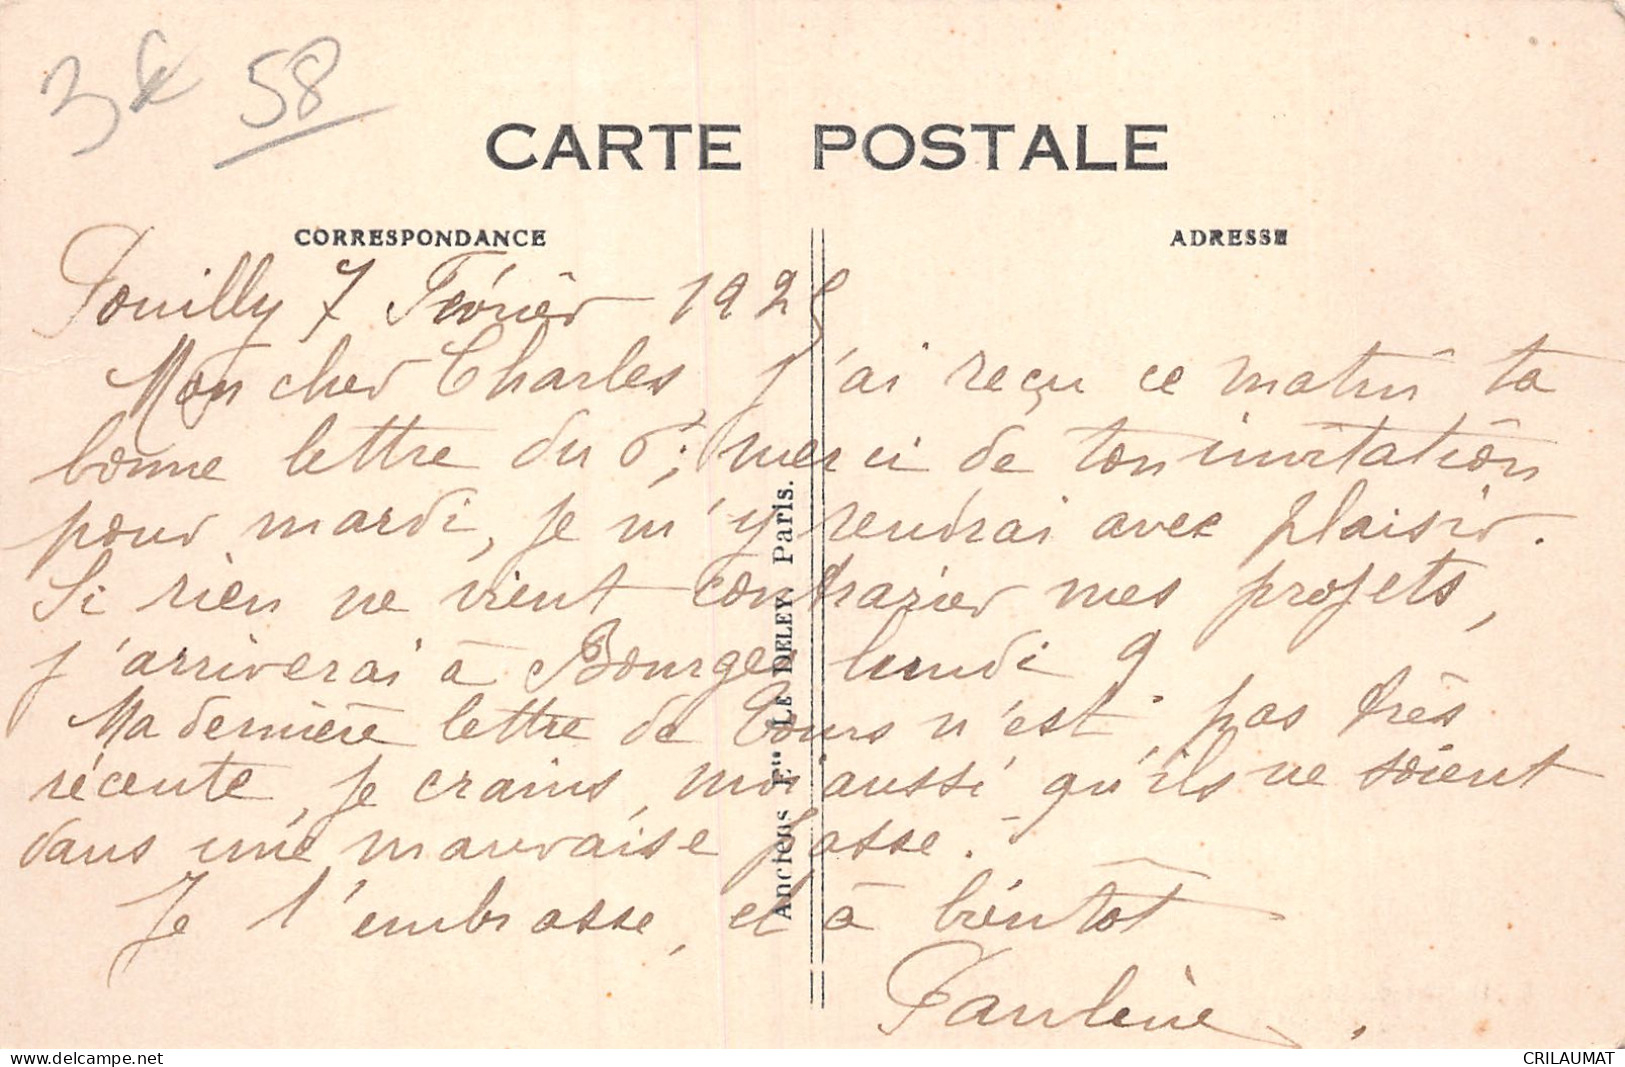 3€ 58
CARTE POSTALE
CORRESPONDANCE
ADRESSE
Pouilly 7 Février 1925
Mon cher Charles, j'ai reçu ce matin ta
bonne lettre du 6; merci de ton invitation
pour mardi, je m'y rendrai avec plaisir.
Si rien ne vient contrarier mes projets,
j'arriverai à Bourges lundi 9.
Ma dernière lettre de Cours n'est pas très
récente, je crains, moi aussi qu'ils ne soient
dans une mauvaise passe.
Je t'embrasse, et à bientôt
Pauline.
Anciens Etts LE DELEY, Paris.
CRILAUMAT